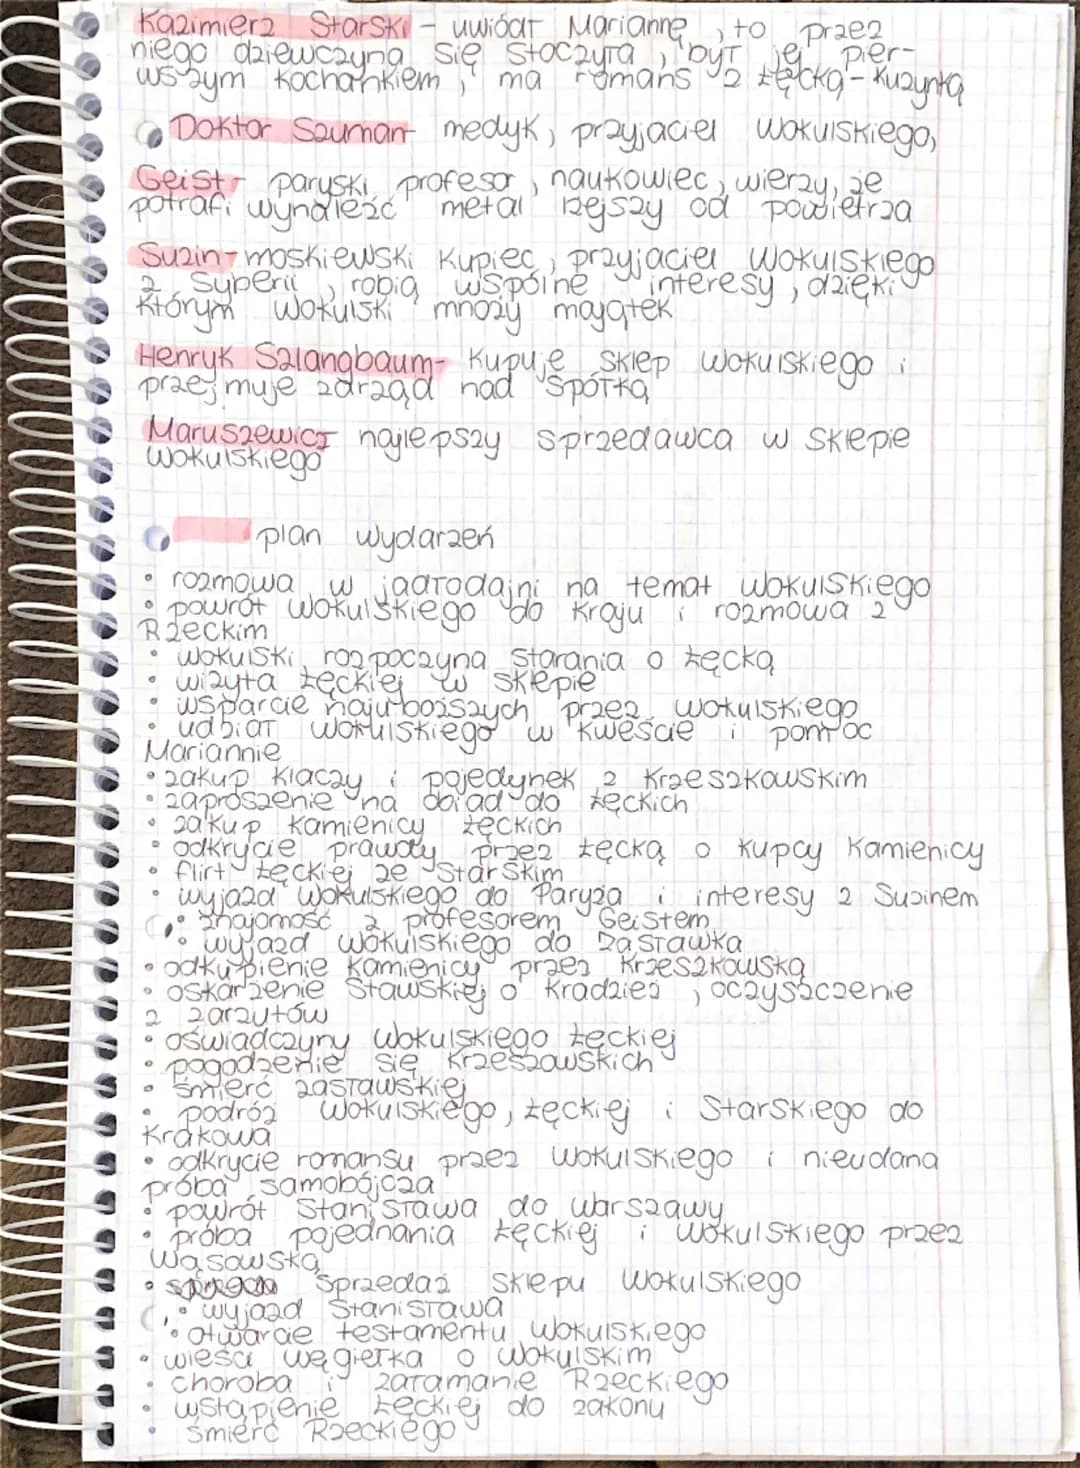 Kazimierz Starski - uwiódł Mariannę, to przez
niego dziewczyna się stoczyła, był jej pier-
wszym kochankiem, ma romans z Łęcką - kuzynką
Doktor Szuman - medyk, przyjaciel Wokulskiego,
Geist - paryski profesor, naukowiec, wierzy, że
potrafi wynaleźć metal lżejszy od powietrza
Suzin - moskiewski kupiec, przyjaciel Wokulskiego
z Syberii, robią wspólne interesy, dzięki
którym Wokulski mnoży majątek
Henryk Szlangbaum - kupuje sklep Wokulskiego i
przejmuje zarząd nad spółką
Maruszewicz najlepszy sprzedawca w sklepie
Wokulskiego
plan wydarzeń
• rozmowa w jadłodajni na temat Wokulskiego
• powrót Wokulskiego do kraju i rozmowa z
Rzeckim
• Wokulski rozpoczyna starania o Łęcką
• wizyta Łęckiej w sklepie
• wsparcie najuboższych przez Wokulskiego
• udział Wokulskiego w kweście i pomoc
Mariannie
• zakup klaczy i pojedynek z Krzeszkowskim
• zaproszenie na obiad do Łęckich
• zakup kamienicy Łęckich
• odkrycie prawdy przez Łęcką o kupcy kamienicy
• flirt Łęckiej ze Starskim
• wyjazd Wokulskiego do Paryża i interesy z Suzinem
• znajomość z profesorem Geistem
• wyjazd Wokulskiego do Zasławka
• odkupienie kamienicy przez Krzeszkowską
• oskarżenie Stawskiej o kradzież, oczyszczenie
z zarzutów
• oświadczyny Wokulskiego Łęckiej
• pogodzenie się Krzeszowskich
• śmierć Zasławskiej
• podróż Wokulskiego, Łęckiej i Starskiego do
Krakowa
• odkrycie romansu przez Wokulskiego i nieudana
próba samobójcza
• powrót Stanisława do Warszawy
• próba pojednania Łęckiej i Wokulskiego przez
Wąsowską
• sprzedaż sklepu Wokulskiego
• wyjazd Stanisława
• otwarcie testamentu Wokulskiego
• wieści Węgiełka o Wokulskim
• choroba i załamanie Rzeckiego
• wstąpienie Łęckiej do zakonu
• śmierć Rzeckiego